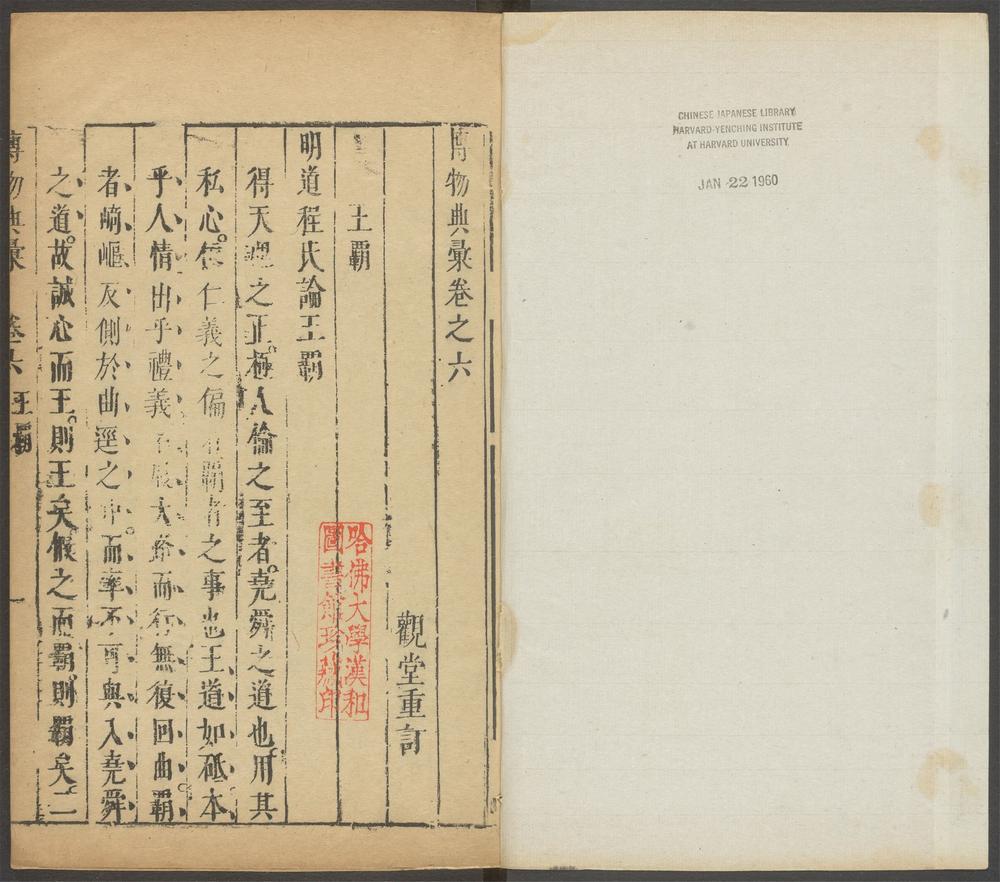 CHINESE JAPANESE LIBRARY
HARVARD-YENCHING INSTITUTE
AT HARVARD UNIVERSITY
JAN 22 1960
博物典彙卷之六
觀堂重訂
王霸
明道程氏論王霸
得天理之正。極人倫之至者。堯舜之道也。用其
私心。依仁義之偏者霸者之事也王道如砥本
乎人情出乎禮義若履大路而行無復回曲。霸
者崎嶇反側於曲逕之中。而卒不可與入堯舜
之道。故誠心而王。則王矣。假之而霸。則霸矣。二
博物典彙 卷六 王霸 一
哈佛大學漢和
圖書館珍藏印